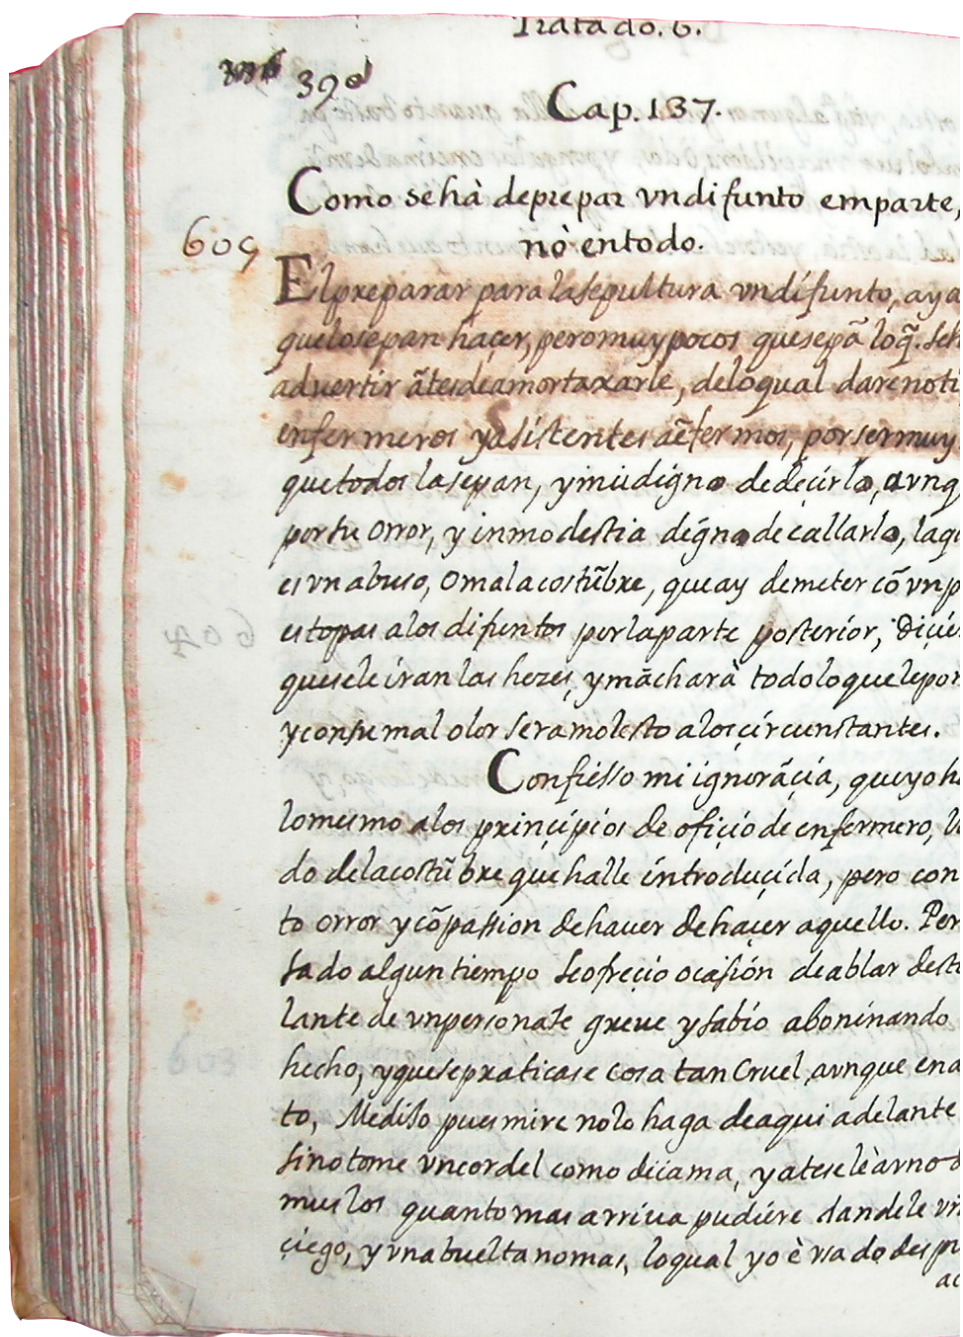 Tratado. 6.
390
Cap. 137.
Como sehà deprepar vndifunto emparte,
nò entodo.
609
Elpreparar para lasepultura vndifunto, aya
quelosepan haçer, peromuypocos quesepã loq̃. seh
advertir ãtesdeamortaxarle, deloqual darenoti
enfermeros yasistentes aẽfermos, porsermuy
quetodos lasepan, ymui digno dedeçirlo, avnq
porsu orror, y inmodestia digno decallarlo, laq
es vnabuso, omalacostũbre, queay demeter cõ vnp
estopas alos difuntos porlaparte posterior, diçie
quesele iran las hezes, ymãcharà todoloquelepon
yconsu mal olor seramolesto aloscircunstantes.
Confiesso mi ignorãçia, queyo h
lomesmo alos prinçipios de ofiçio de enfermero, ll
do delacostũbre que halle introduçida, pero con
to orror ycõpassion dehauer dehaçer aquello. Per
sado algun tiempo seofreçio ocasión deablar dest
lante de vnpersonase greue ysabio aboninando
hecho, yquesepraticase cosa tan cruel, avnque ena
to, Mediso pues mire nolo haga deaqui adelante
sinotome vncordel como deiama, yateselè avno d
muslos quanto mas arriva pudiere dandele vñ
çiego, yvna buelta nomas, loqual yo è vsado desp
ac
602
603